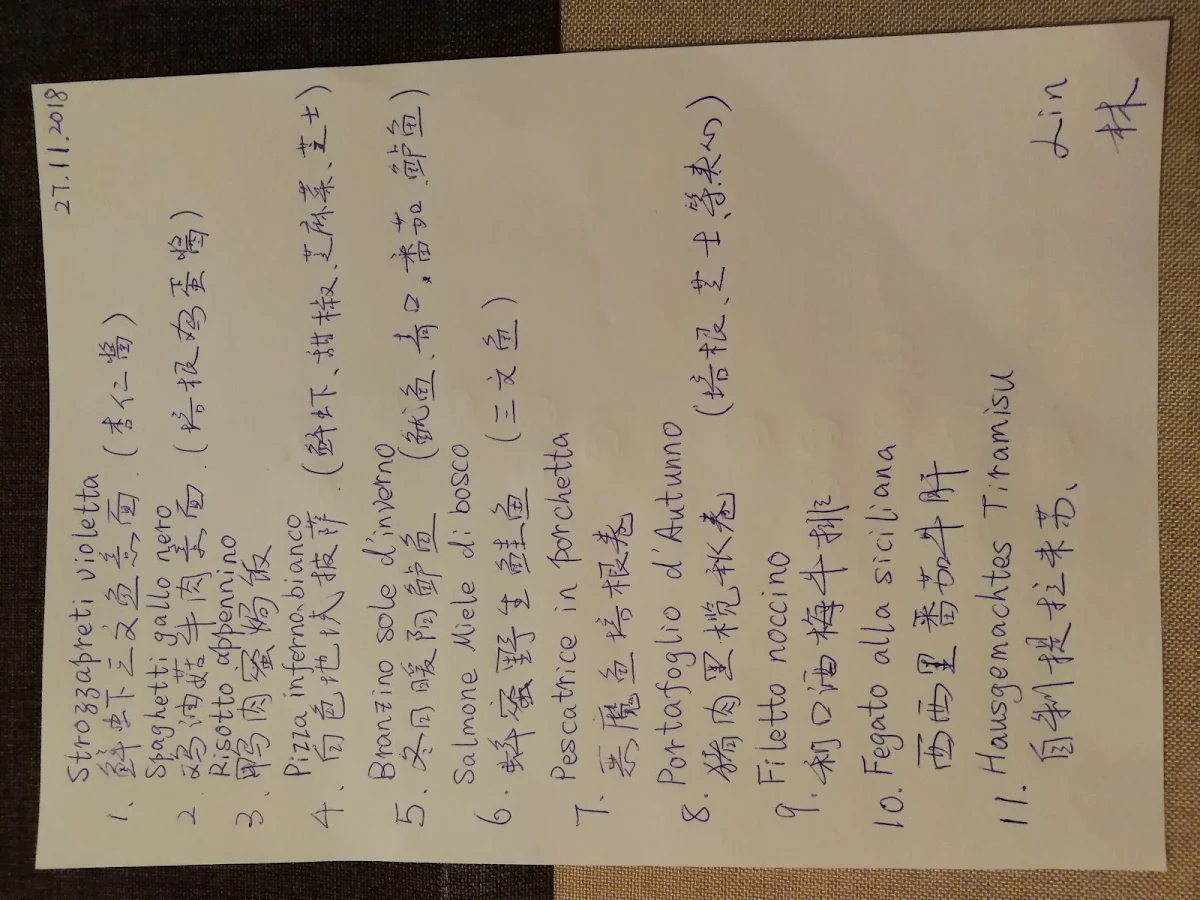 27.11.2018
Strozzapreti violetta
1、鲜虾三文鱼意面.(杏仁酱)
Spaghetti gallo nero
2. 鸡油菇牛肉意面.(培根鸡蛋酱)
Risotto appennino
3、鸭肉蜜焗饭
Pizza inferno bianco
4、白色地伏披萨.(鲜虾、甜椒、芝麻菜、芝士)
Branzino sole d'inverno
5、冬日暖阳鲈鱼 (鱿鱼、青口、番茄、鲈鱼)
Salmone Miele di bosco
6. 蜂蜜野生鲑鱼 (三文鱼)
Pescatrice in porchetta
7. 恶魔鱼培根卷
Portafoglio d'Autunno
8. 猪肉里榄秋卷 (培根、芝士、等夹心)
Filetto noccino
9. 利口酒梅牛排
10. Fegato alla siciliana
西西里番茄牛肝
11. Hausgemachtes Tiramisu
自制提拉米苏、
Lin
林